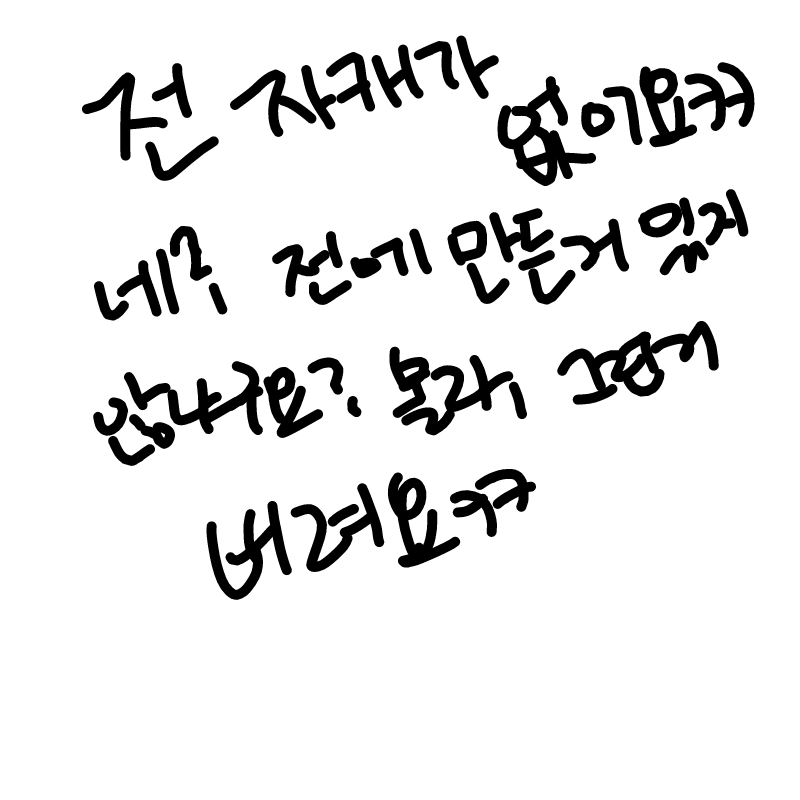 전 자캐가 없이요ㅋㅋ
네?, 전에 만든거 있지
않냐구요? 몰라, 그런거
버려요ㅋㅋ